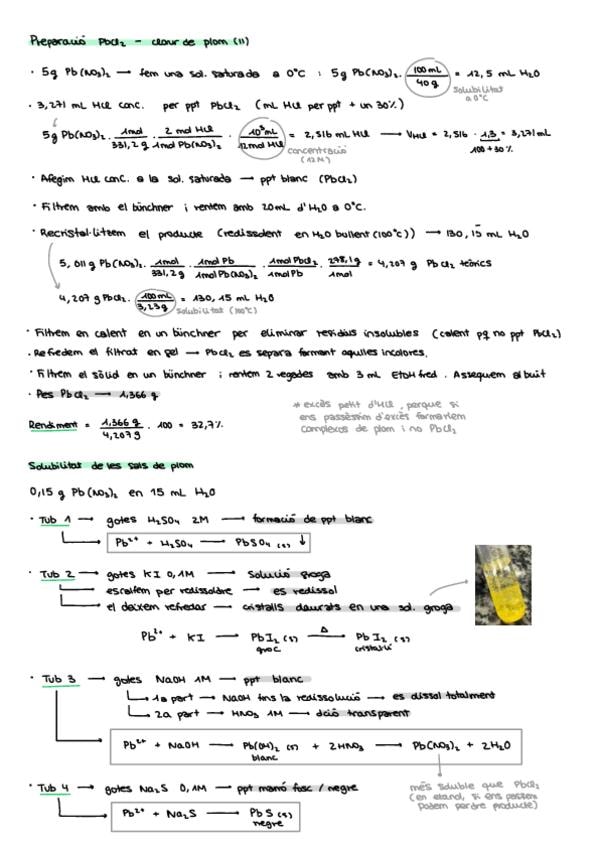 Preparació PbCl₂ - clorur de plom (II)
· 5g Pb(NO₃)₂ → fem una sol. saturada a 0°C : 5g Pb(NO₃)₂ · 100 mL / 40 g = 12,5 mL H₂O
solubilitat a 0°C
· 3,271 mL HCl conc. per ppt PbCl₂ (mL HCl per ppt + un 30%)
5g Pb(NO₃)₂ · 1mol / 331,2 g · 2 mol HCl / 1mol Pb(NO₃)₂ · 10³mL / 12mol HCl = 2,516 mL HCl → V HCl = 2,516 · 1,3 = 3,271 mL
concentració (12M)
100+30%
· Afegim HCl conc. a la sol. saturada → ppt blanc (PbCl₂)
· Filtrem amb el büchner i rentem amb 20mL d'H₂O a 0°C.
· Recristal·litzem el producte (redissolent en H₂O bullent (100°C)) → 130,15 mL H₂O
5,011g Pb(NO₃)₂ · 1mol / 331,2g · 1mol Pb / 1mol Pb(NO₃)₂ · 1mol PbCl₂ / 1mol Pb · 278,1g / 1mol = 4,207 g PbCl₂ teòrics
4,207 g PbCl₂ · 100mL / 3,23g = 130,15 mL H₂O
solubilitat (100°C)
· Filtrem en calent en un büchner per eliminar residus insolubles (calent pq no ppt PbCl₂)
· Refredem el filtrat en gel → PbCl₂ es separa formant agulles incolores.
· Filtrem el sòlid en un büchner i rentem 2 vegades amb 3 mL EtOH fred. Assequem al buit
· Pes PbCl₂ → 1,366 g
* excès petit d'HCl, perque si
ens passéssim d'excès formariem
complexos de plom i no PbCl₂
Rendiment = 1,366 g / 4,207g · 100 = 32,7%
Solubilitat de les sals de plom
0,15 g Pb(NO₃)₂ en 15 mL H₂O
· Tub 1 → gotes H₂SO₄ 2M → formació de ppt blanc
Pb²⁺ + H₂SO₄ → PbSO₄ (s) ↓
· Tub 2 → gotes KI 0,1M → Solució groga
→ escalfem per redissoldre → es redissol
→ el deixem refredar → cristalls daurats en una sol. groga
Pb²⁺ + KI → PbI₂ (s) Δ→ PbI₂ (s)
groc
· Tub 3 → gotes NaOH 1M → ppt blanc
→ 1a part → NaOH fins la redissolució → es dissol totalment
→ 2a part → HNO₃ 1M → dció transparent
Pb²⁺ + NaOH → Pb(OH)₂ (s) + 2HNO₃ → Pb(NO₃)₂ + 2H₂O
blanc
· Tub 4 → gotes Na₂S 0,1M → ppt marró fosc / negre
Pb²⁺ + Na₂S → PbS (s)
negre
més soluble que PbCl₂
(en etanol, si ens passem
podem perdre producte)